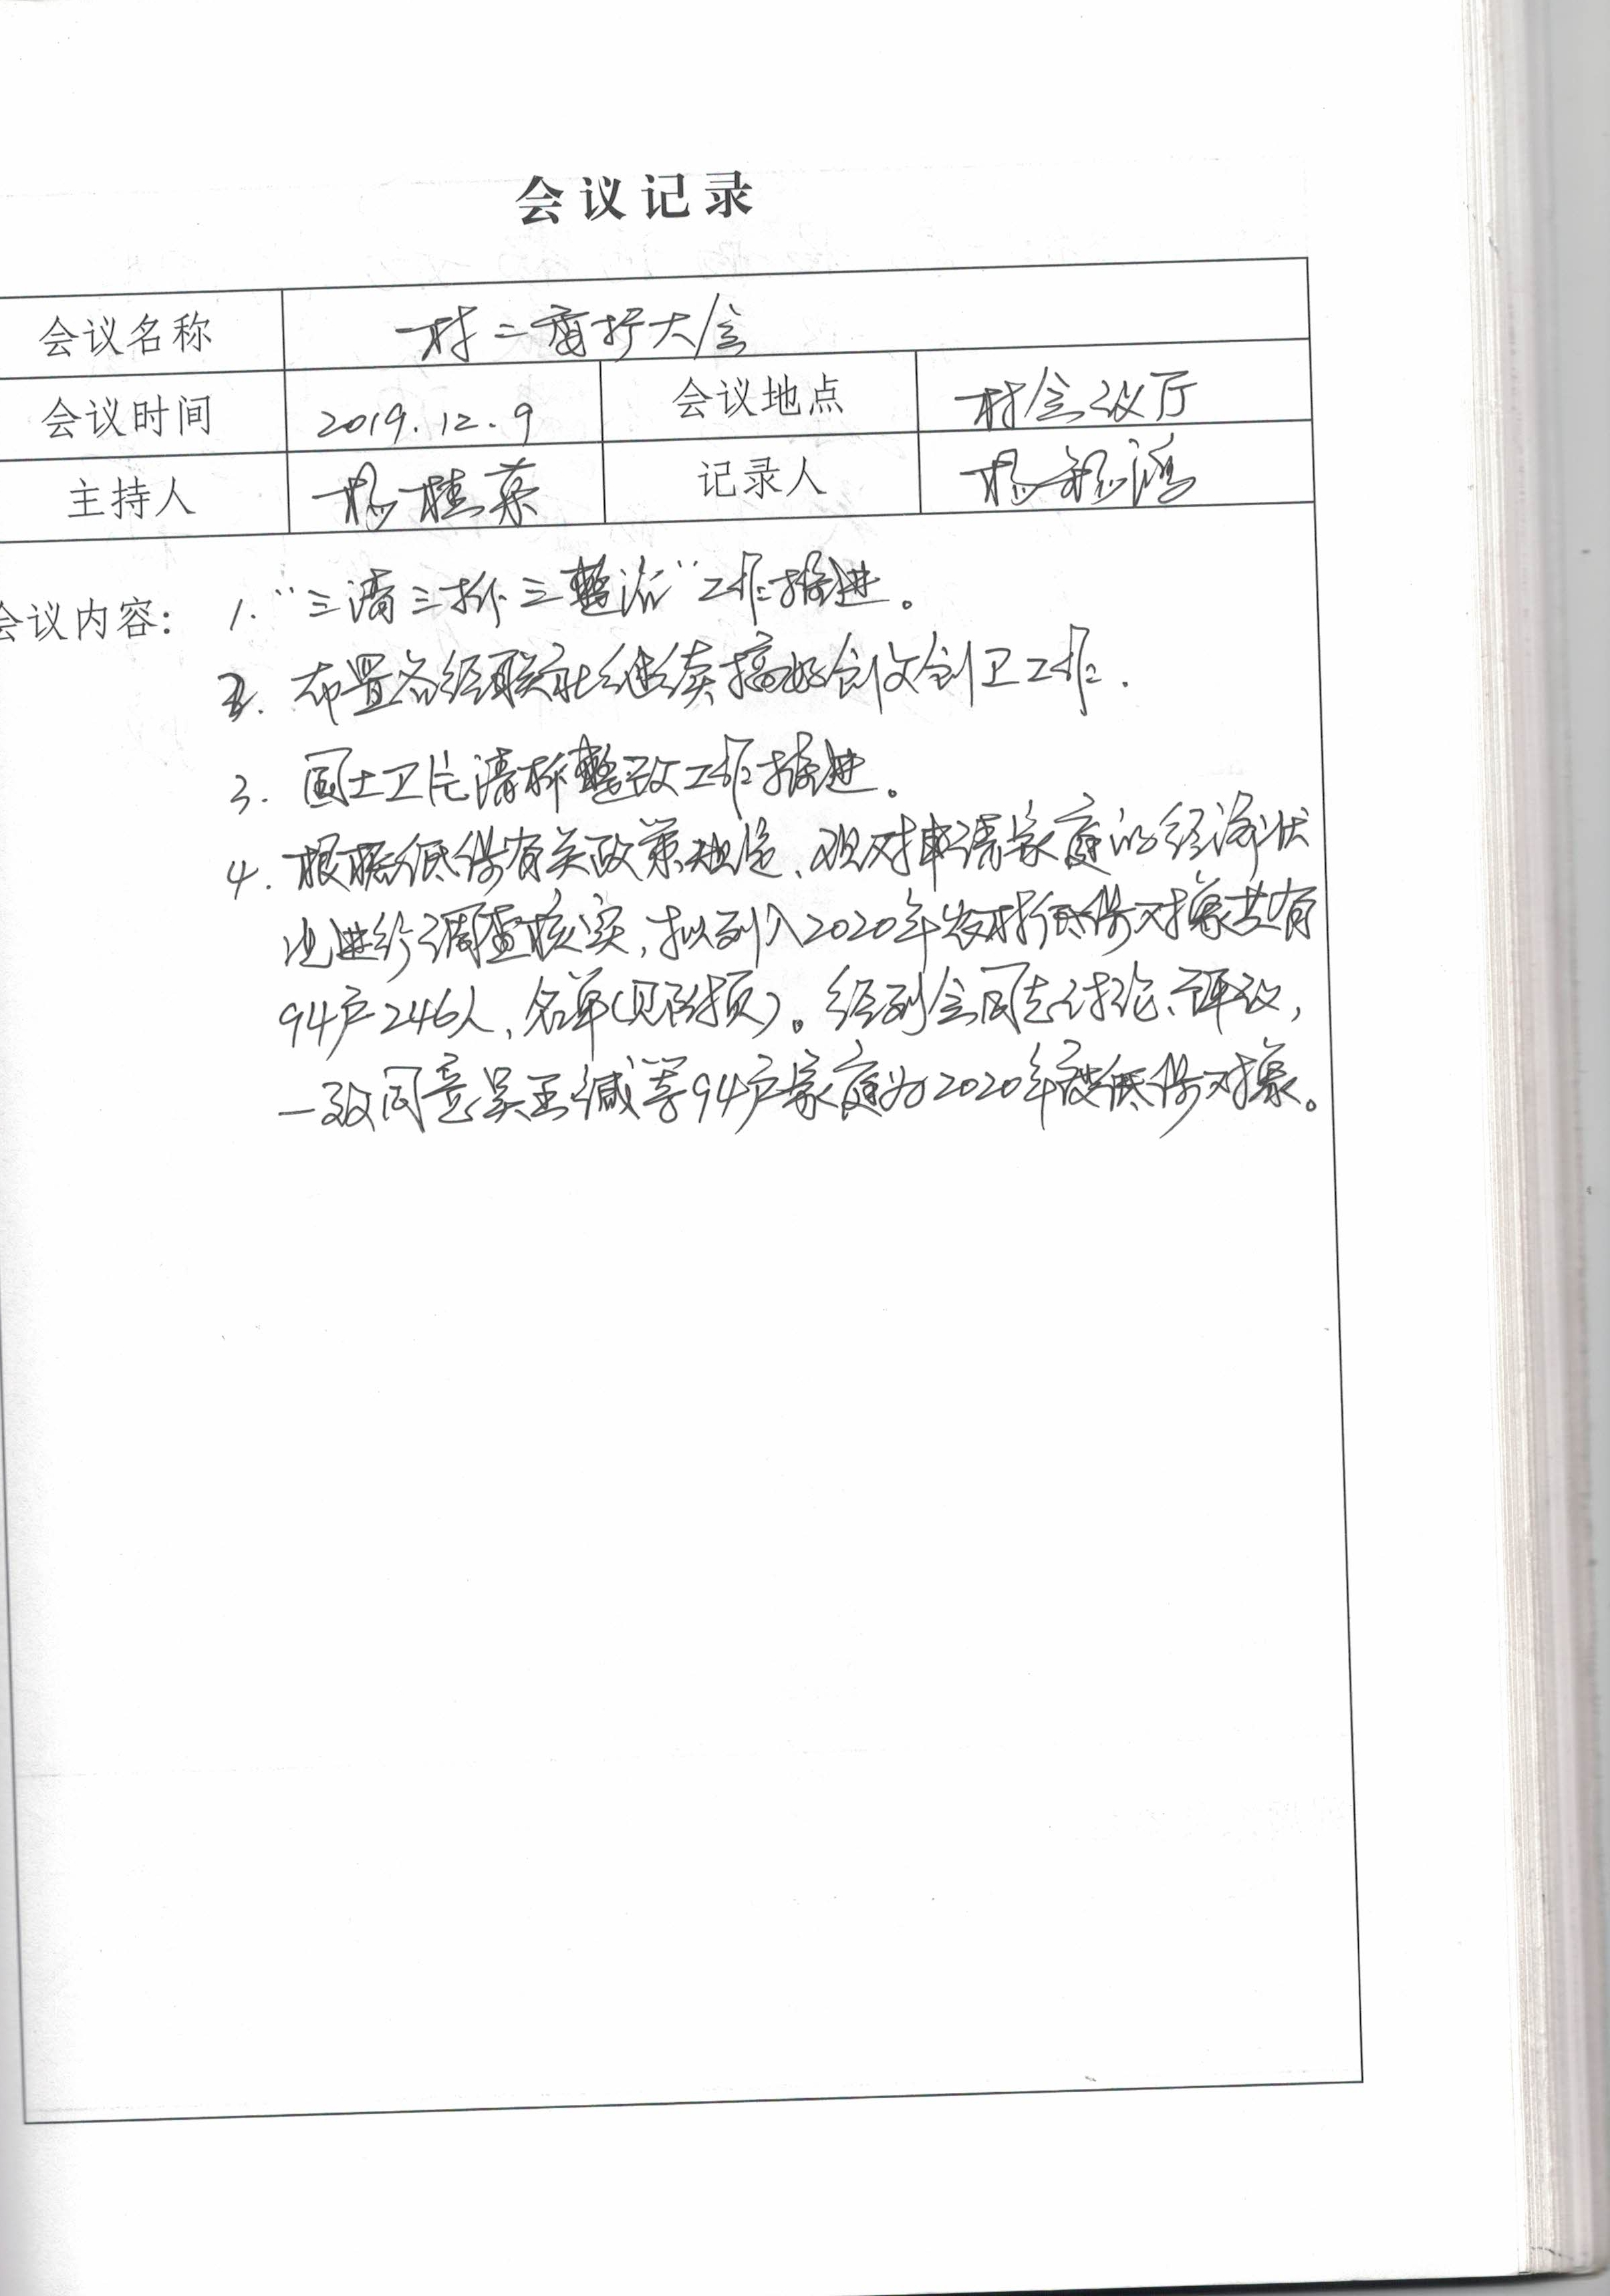 会议记录
会议名称 村二委扩大会
会议时间 2019.12.9 会议地点 村会议厅
主持人 杨桂荣 记录人 杨
会议内容: 1. “三清三拆三整治”工作推进。
2. 布置各经联社继续搞好创文创卫工作.
3. 国土卫片清拆整改工作推进。
4. 根据低保有关政策规定、现对申请家庭的经济状
况进行调查核实, 拟列入2020年农村低保对象共有
94户246人, 名单(见附页)。经到会同志讨论、评议,
一致同意吴 等94户家庭为2020年度低保对象。